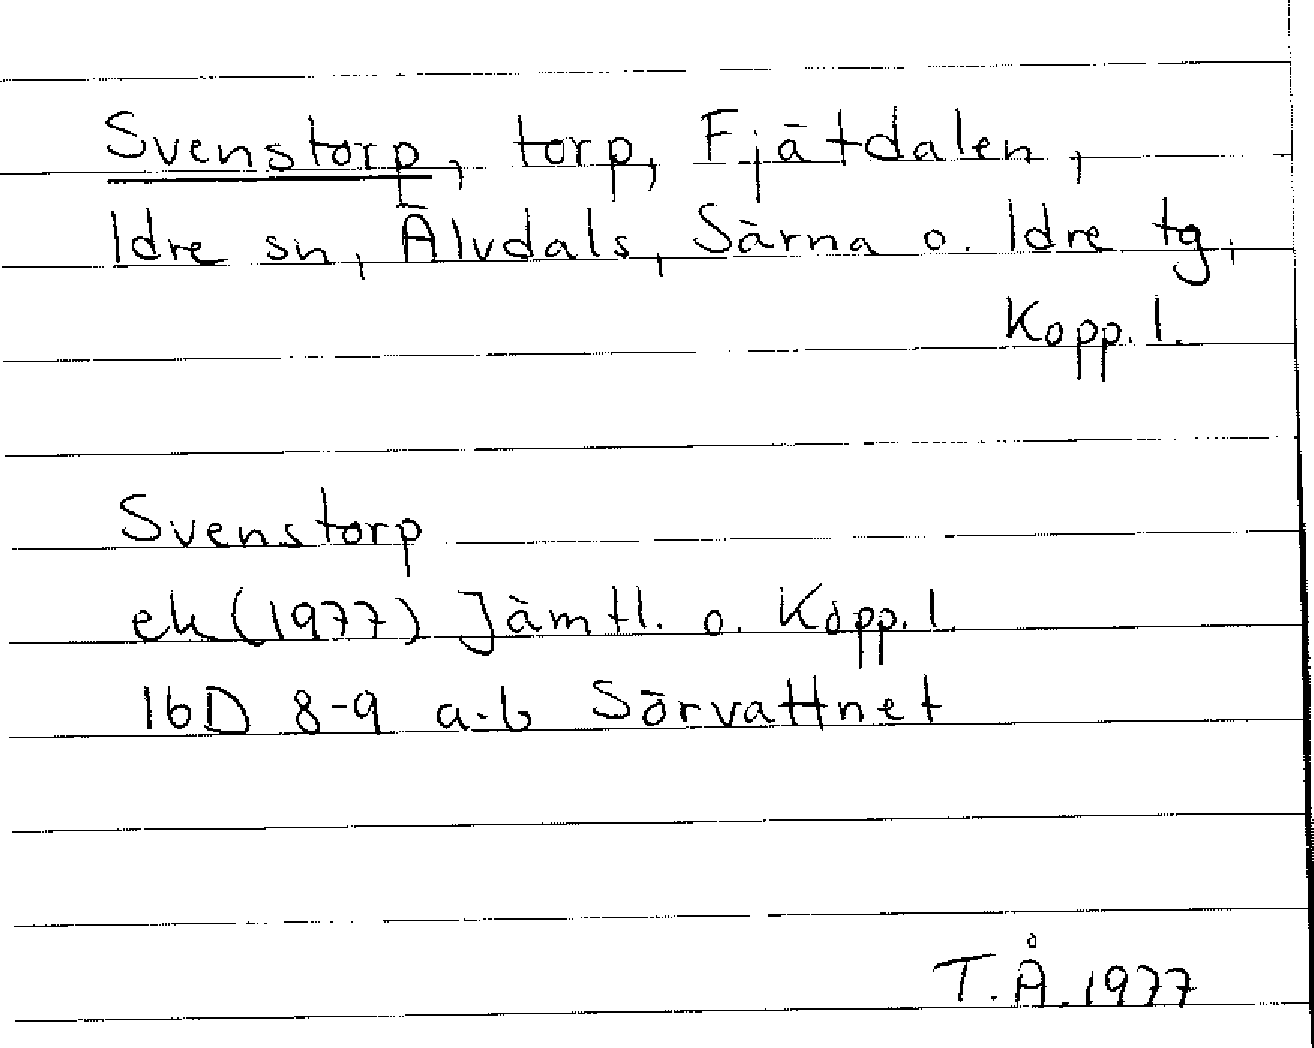 Svenstorp, torp, Fjätdalen,
Idre sn, Älvdals, Särna o. Idre tg,
Kopp. l.
Svenstorp
ek (1977) Jämtl. o. Kopp. l
16D 8-9 a-b Sörvattnet
T.Å. 1977